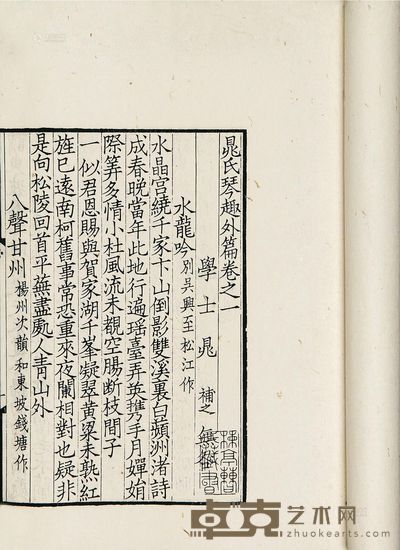 晁氏琴趣外篇卷之一
學士 晁 補之 無咎
楝亭曹氏藏書
水龍吟 別吳興至松江作
水晶宮繞千家卞山倒影雙溪裏白蘋洲渚詩
成春晚當年此地行遍瑶臺弄英携手月嬋娟
際筭多情小杜風流未覩空腸斷枝間子
一似君恩賜與賀家湖千峯凝翠黄粱未熟紅
旌巳遠南柯舊事常恐重來夜闌相對也疑非
是向松陵回首平蕪盡處人青山外
八聲甘州 楊州次韻和東坡錢塘作
卓克艺术网
zhuokearts.com